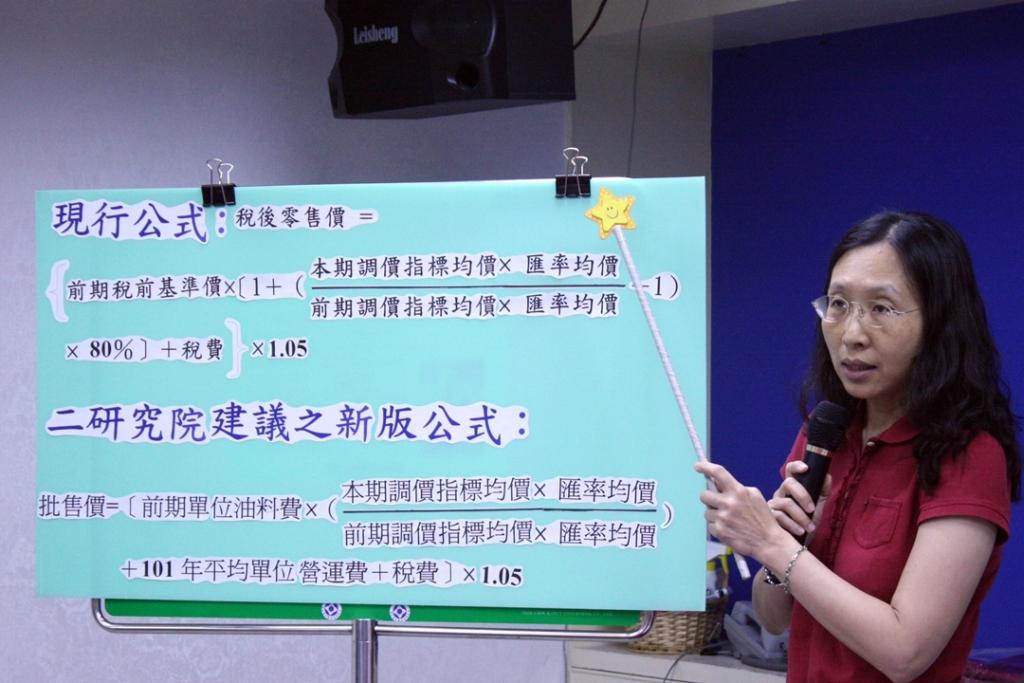 Leisheng
現行公式：稅後零售價 =
{前期稅前基準價×〔1+（本期調價指標均價× 匯率均價
前期調價指標均價× 匯率均價
-1）
× 80%〕+稅費}×1.05
二研究院建議之新版公式：
批售價=〔前期單位油料費×（本期調價指標均價× 匯率均價
前期調價指標均價× 匯率均價）
+101 年平均單位營運費+稅費〕×1.05